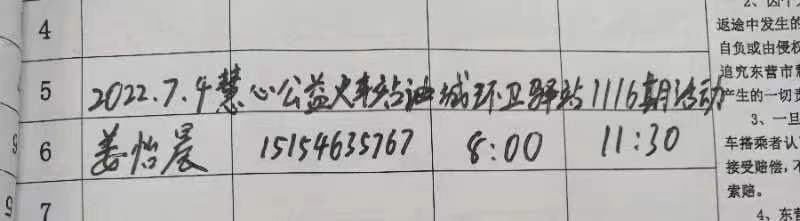 4
5 2022.7.4慧心公益火车站油城环卫驿站1116期活动
6 姜怡晨 15154635767 8:00 11:30
7
返途中发生的
自负或由侵权
追究东营市慧
产生的一切责
3、一旦
车搭乘者认
接受赔偿,不
索赔。
4、东营